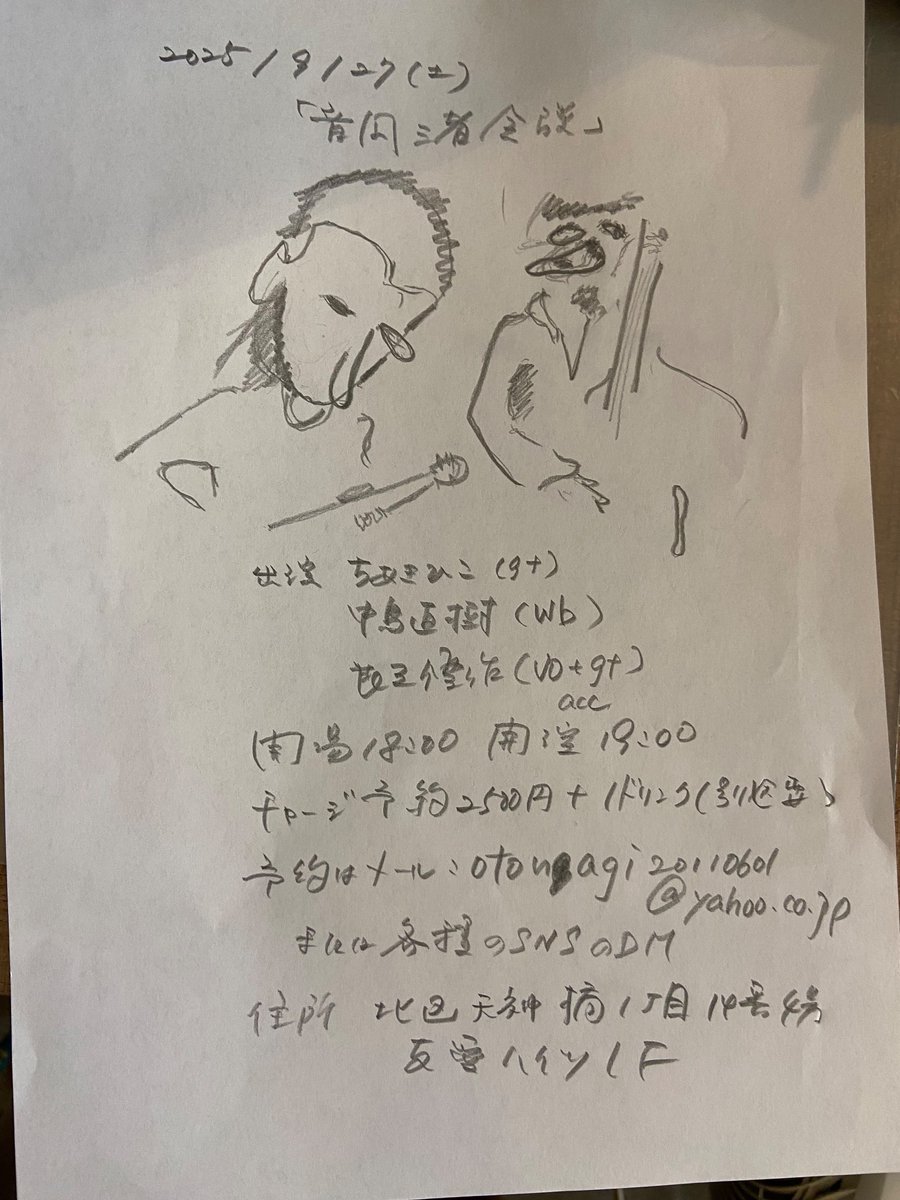 2025/9/27(土)
「音凪三者会談」
出演 ちあきひこ(gt)
中島直樹(wb)
(vo+gt)
acc
開場18:00 開演19:00
チャージ予約2500円+1ドリンク(別途要)
予約はメール:otonagi20110601
@yahoo.co.jp
または各種のSNSのDM
住所 北区天神橋1丁目14番4号
ハイツ1F